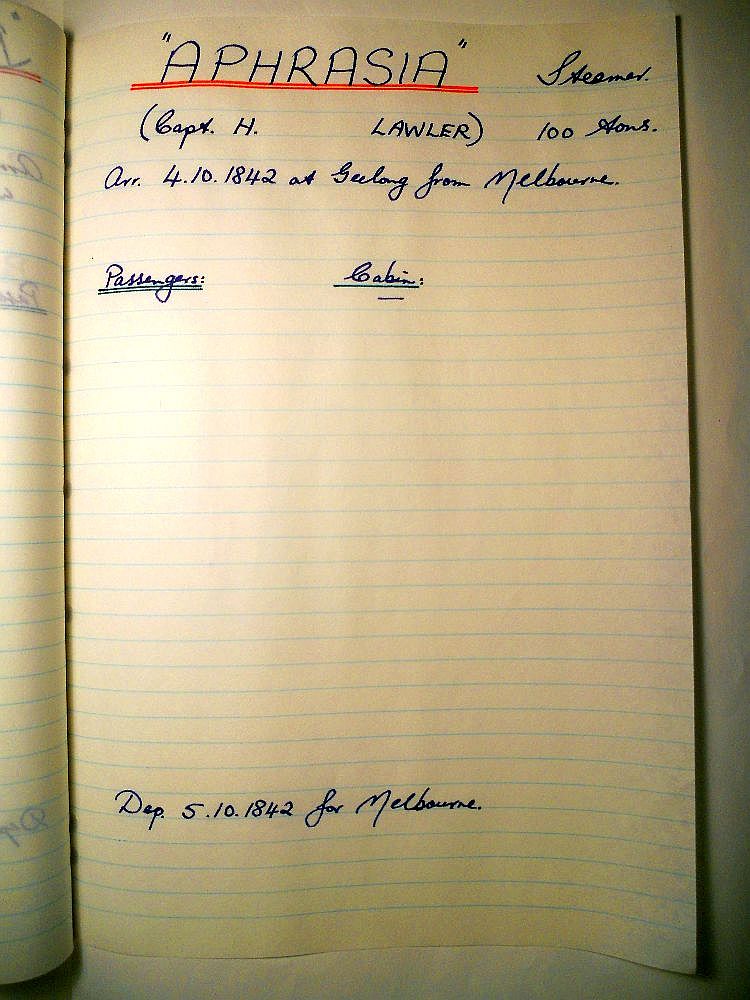 "APHRASIA" Steamer.
(Capt. H. LAWLER) 100 tons.
Arr. 4.10.1842 at Geelong from Melbourne.
Passengers: Cabin:
Dep. 5.10.1842 for Melbourne.